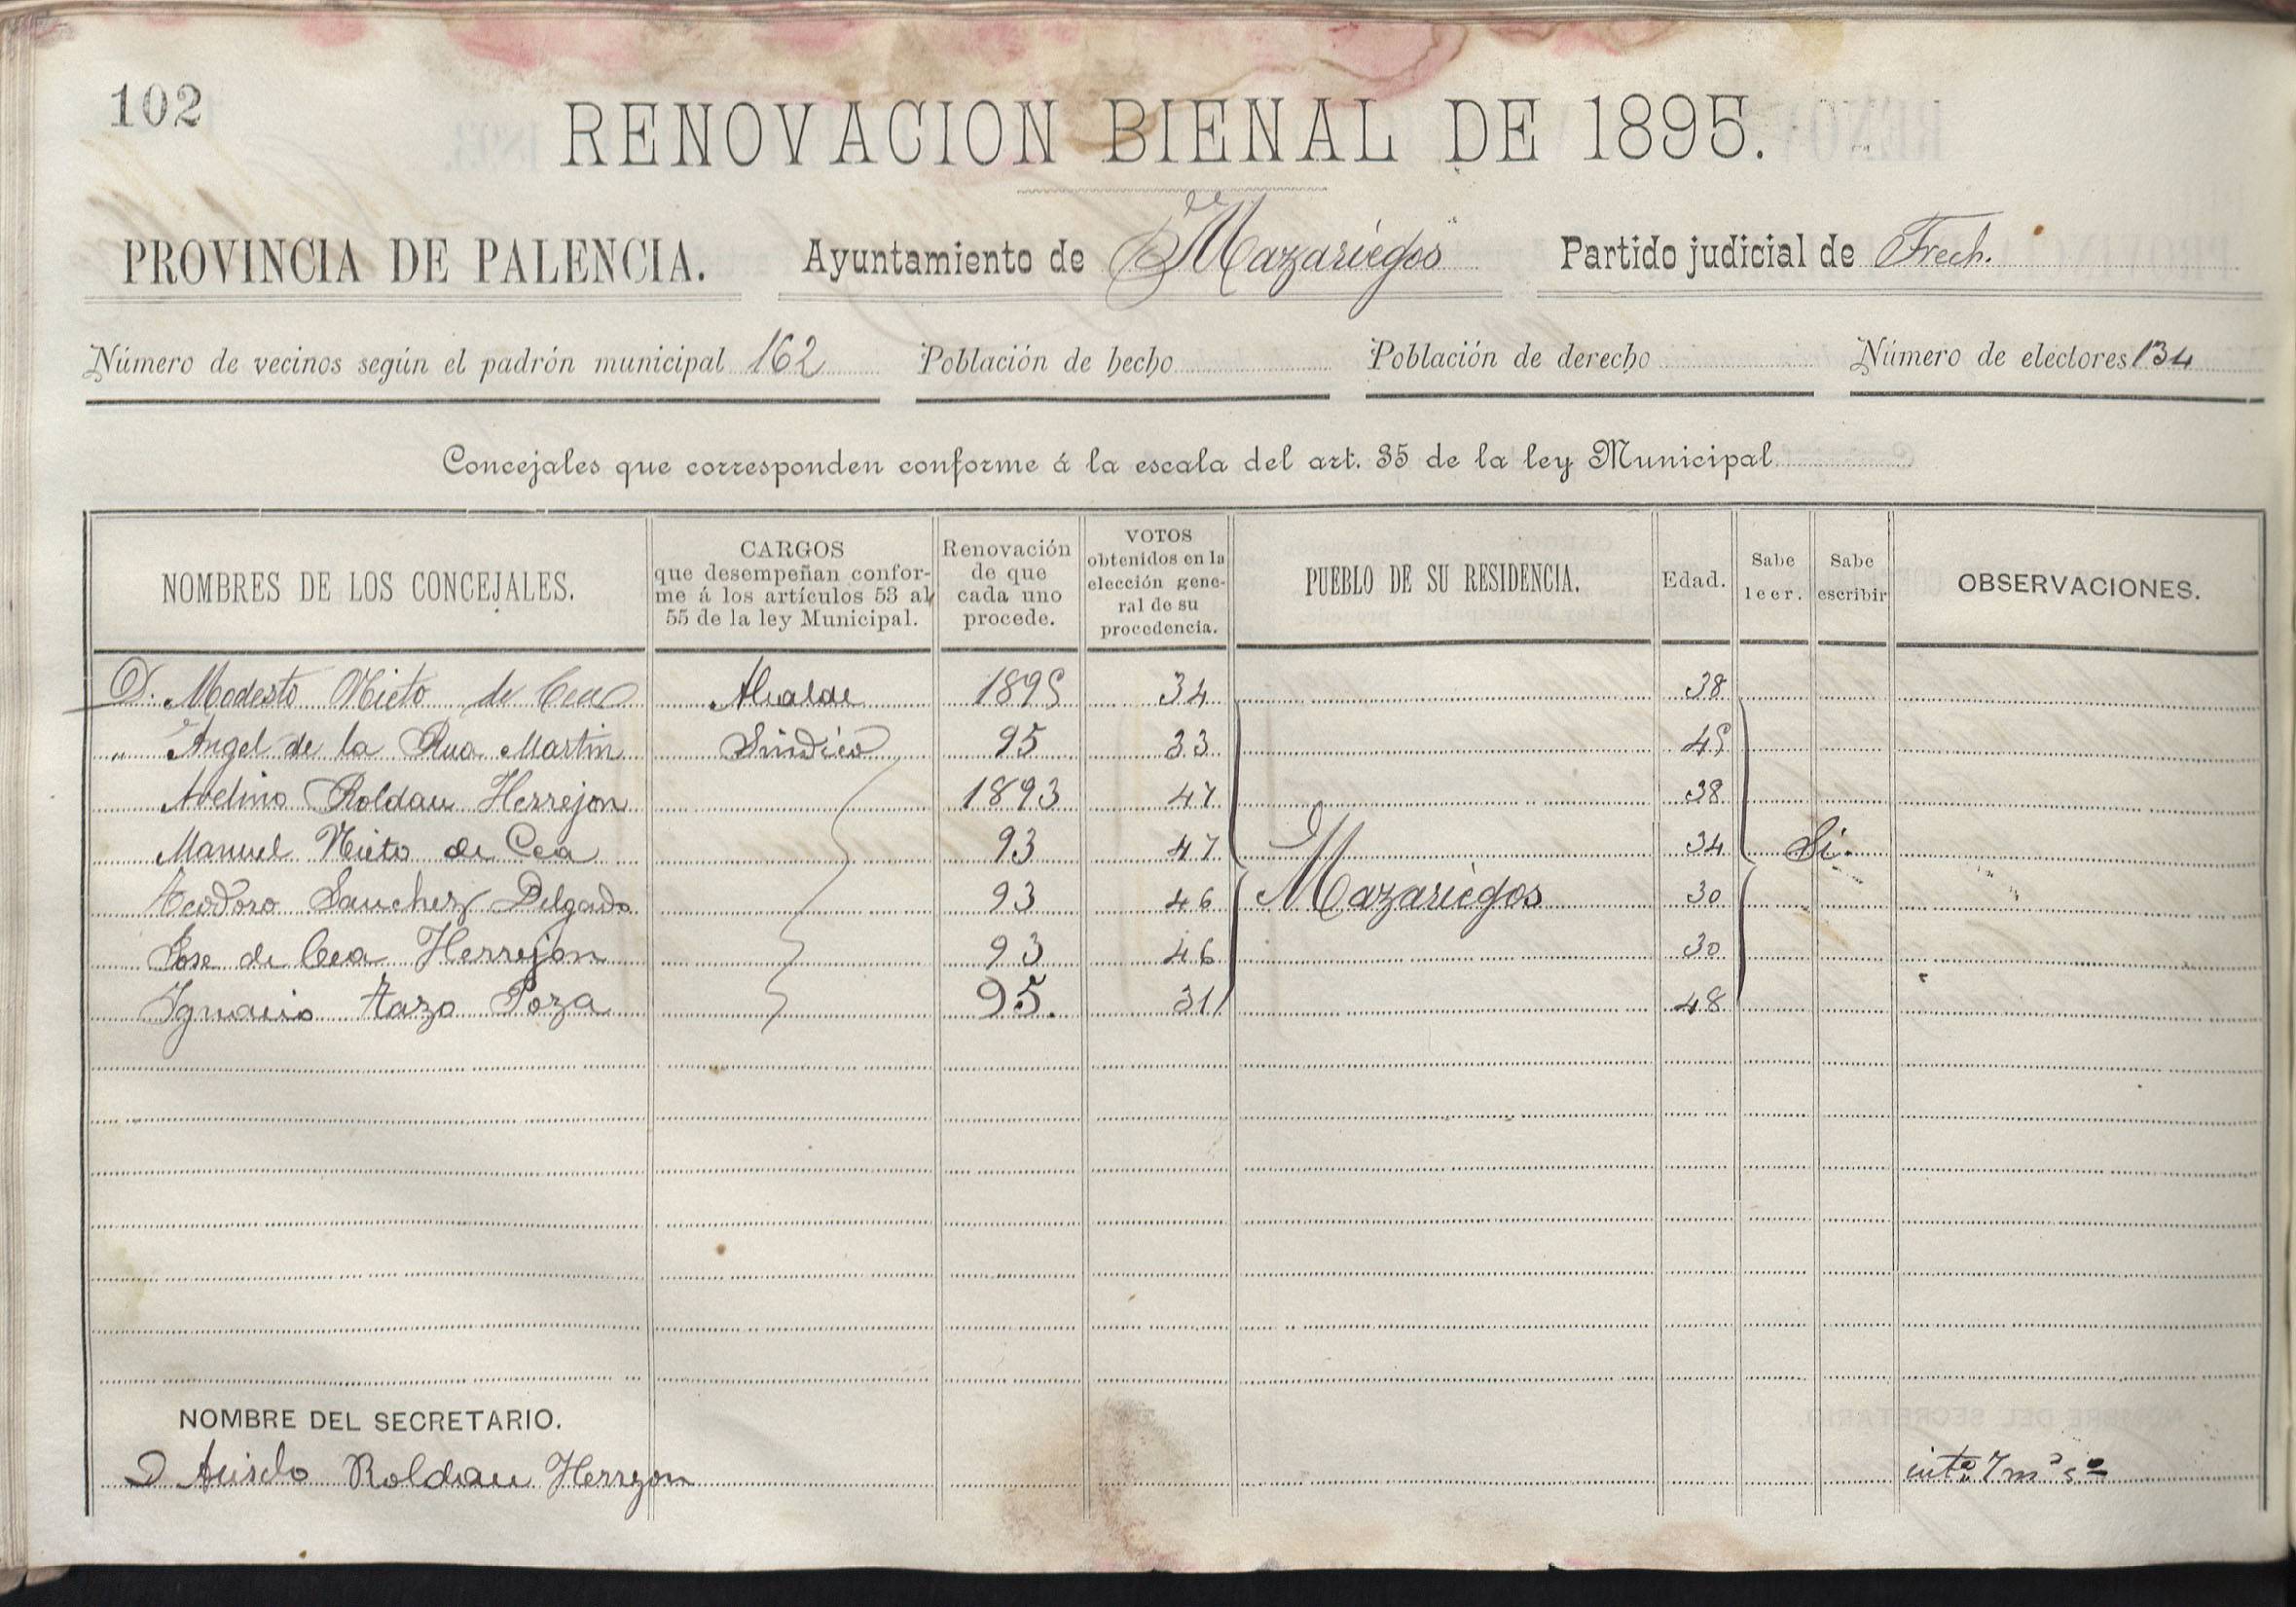 102
RENOVACION BIENAL DE 1895.
PROVINCIA DE PALENCIA. Ayuntamiento de Mazariegos Partido judicial de Frech.
Número de vecinos según el padrón municipal 162 Población de hecho Población de derecho Número de electores 134
Concejales que corresponden conforme á la escala del art. 35 de la ley Municipal
NOMBRES DE LOS CONCEJALES. CARGOS que desempeñan conforme á los artículos 53 al 55 de la ley Municipal. Renovación de que cada uno procede. VOTOS obtenidos en la elección general de su procedencia. PUEBLO DE SU RESIDENCIA. Edad. Sabe leer. Sabe escribir OBSERVACIONES.
D. Modesto Nieto de Cea Alcalde 1895 34 38
" Angel de la Rua Martin Sindico 95 33 45
Avelino Roldan Herrejon 1893 47 38
Manuel Nieto de Cea 93 47 34 Si.
Teodoro Sanchez Delgado 93 46 Mazariegos 30
Jose de Cea Herrejon 93 46 30
Ignacio Tazo Poza 95. 31 48
NOMBRE DEL SECRETARIO.
D Aniclo Roldan Herrejon